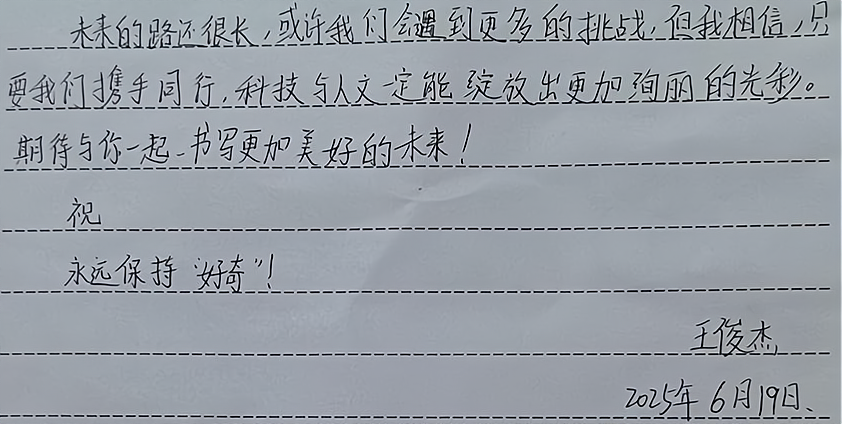 未来的路还很长，或许我们会遇到更多的挑战，但我相信，只
要我们携手同行，科技与人文一定能绽放出更加绚丽的光彩。
期待与你一起书写更加美好的未来！
祝
永远保持“好奇”！
王俊杰
2025年6月19日、